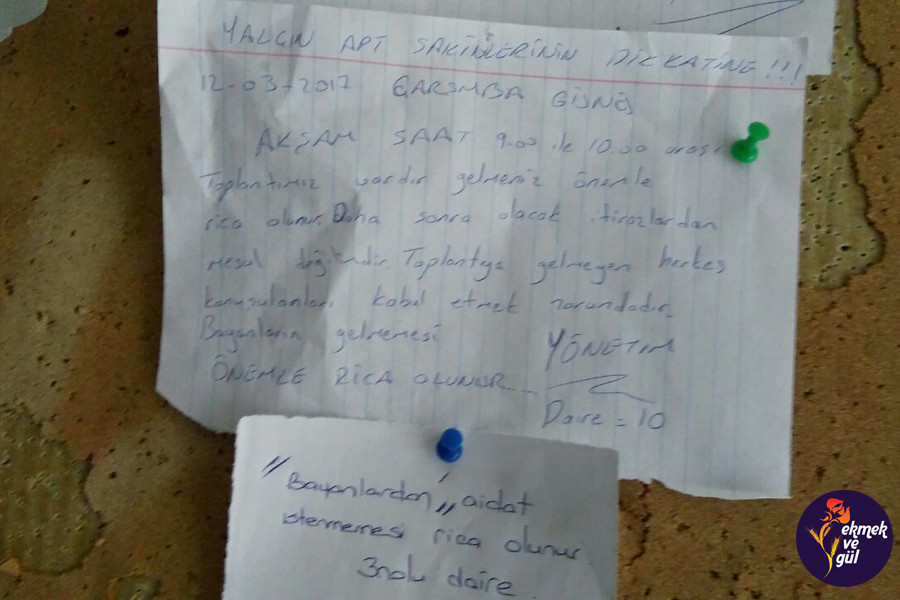 YALÇIN APT SAKİNLERİNİN DİKKATİNE!!!
12-03-2012 ÇARŞMBA GÜNÜ
AKŞAM SAAT 9.00 ile 10.00 arası
Toplantımız vardır gelmeniz önemle
rica olunur. Daha sonra olacak itirazlardan
mesul değildir. Toplantıya gelmeyen herkes
konuşulanları kabul etmek zorundadır.
Bayanların gelmemesi
ÖNEMLE RİCA OLUNUR...
YÖNETİM
Daire = 10
"Bayanlardan" aidat
istenmemesi rica olunur
3nolu daire.
ekmek
ve
gül